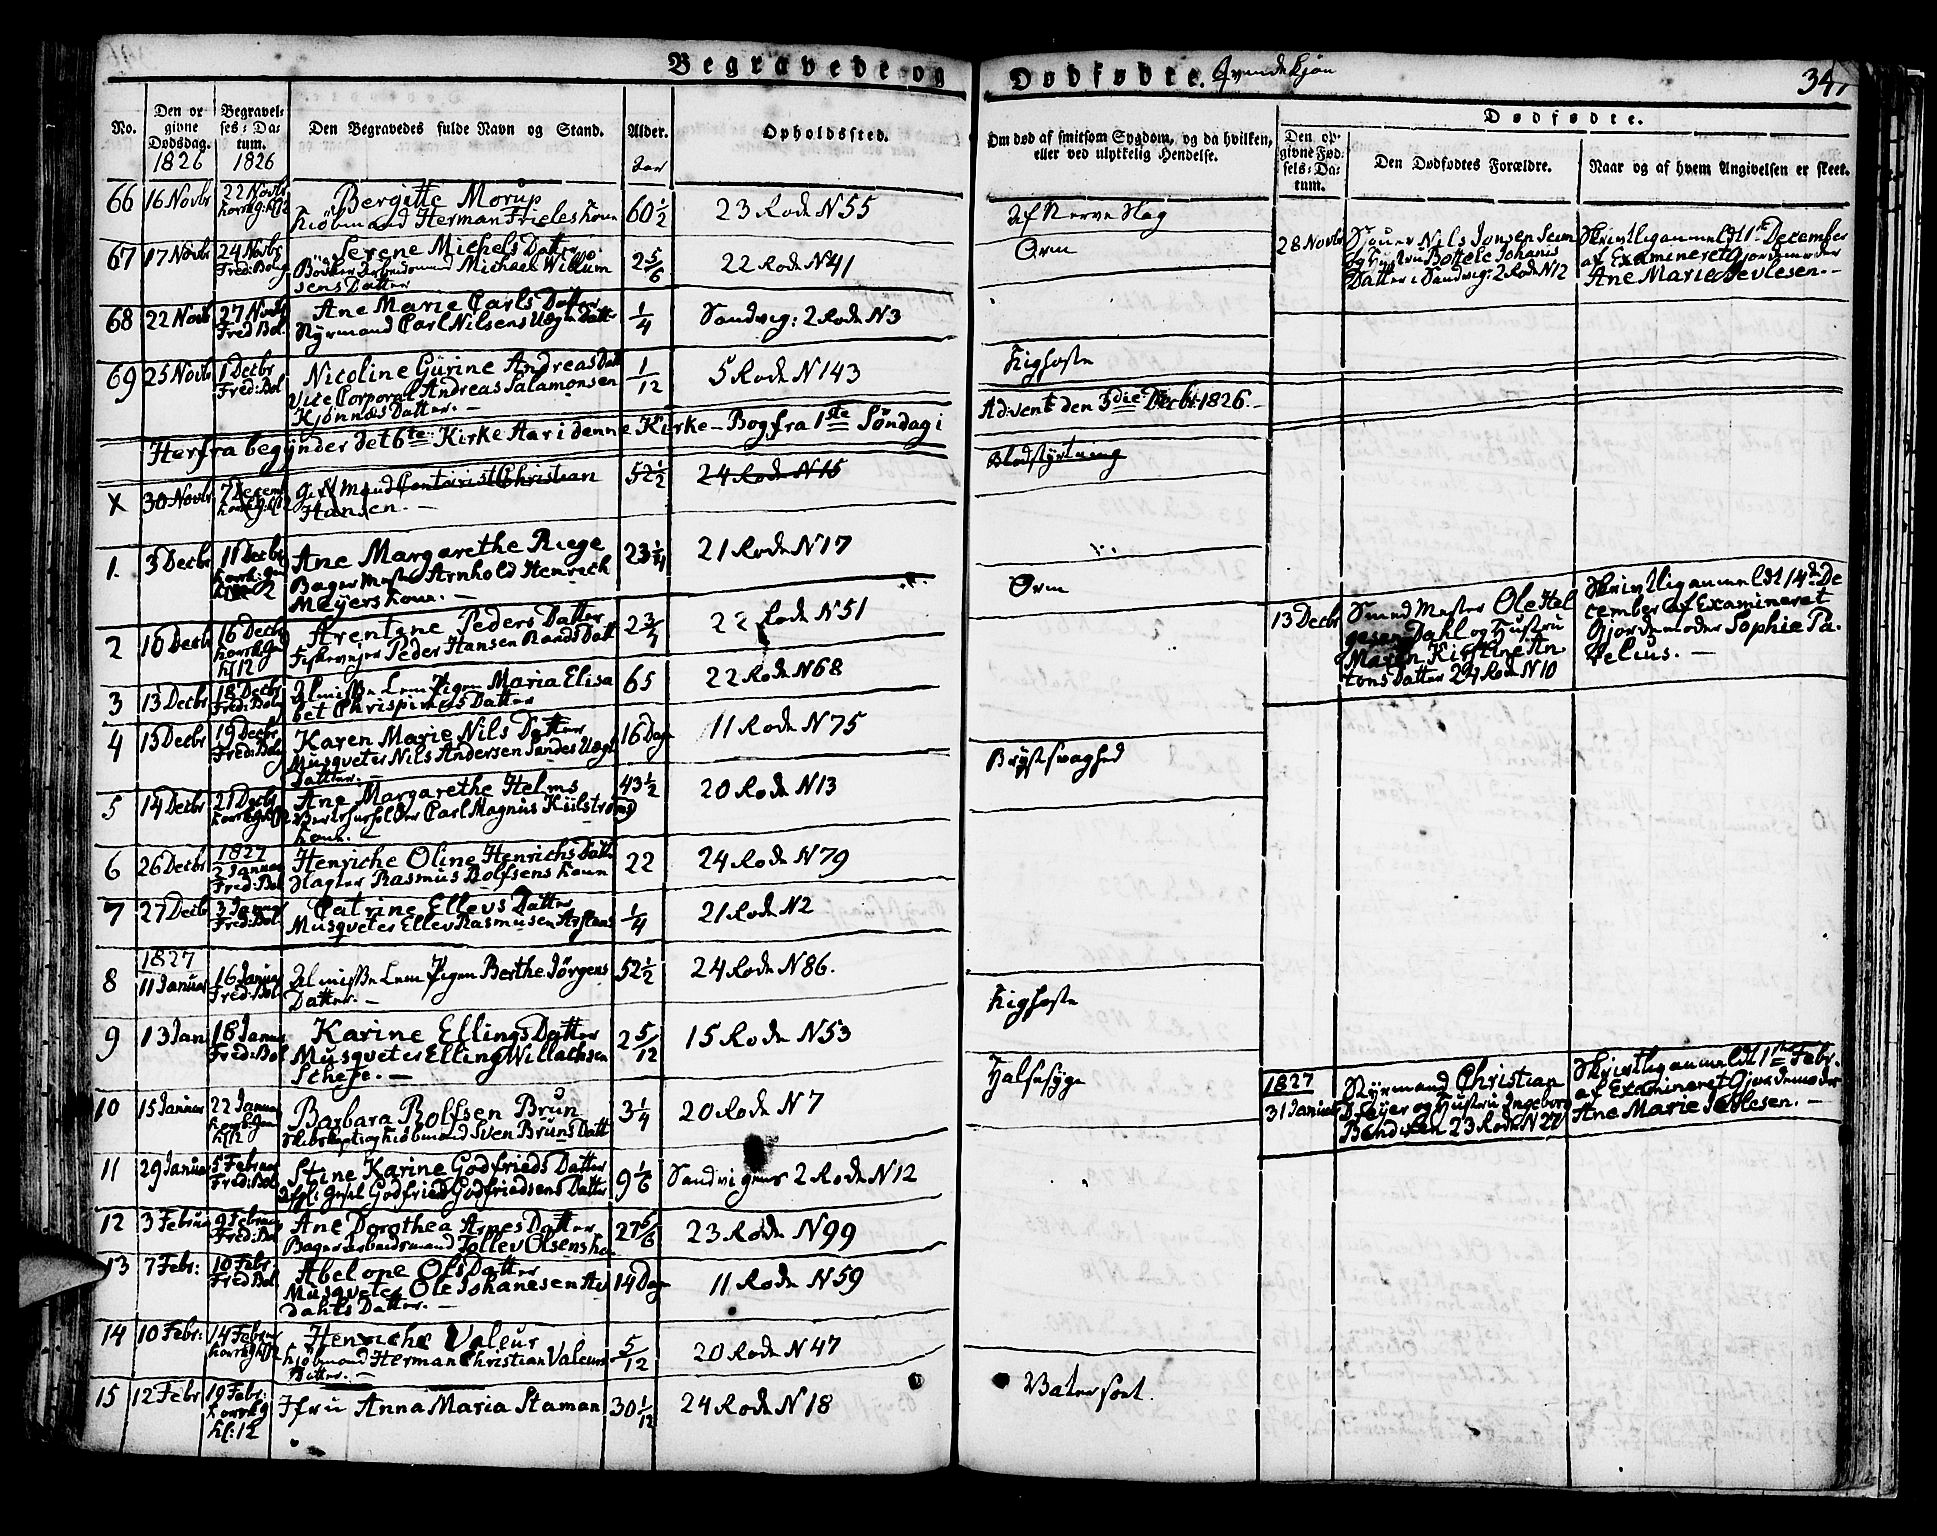 Begravede og Dødfødte. Qvindekjøn
34
No.
Den opgivne Dødsdag.
1826
Begravelses-Datum.
1826
Den Begravedes fulde Navn og Stand.
Alder.
Aar
Opholdssted.
Om død af smitsom Sygdom, og da hvilken, eller ved ulykkelig Hendelse.
Dødfødte.
Den opgivne Fødsels-Datum.
Den Dødfødtes Forældre.
Naar og af hvem Angivelsen er skeet.
66 16 Novbr 22 Novbr Bergitte Mørup
Kiöbmand Herman Frieles Kone 60 1/2 23 Rode N 55
Af Nerve Slag
67 17 Novbr 24 Novbr Fred: Bolg Serene Michels Datter
Bödker Arbeidsmand Michael Willum
sens Datter 2 5/6 22 Rode N 41
Orm
28 Novbr Nils Jonsen Seim
og Hustru Bottele Johanis
Datter i Sandvig: 2 Rode N 12
Skrivtlig anmeldt 1te December
af Examineret Gjordemoder
Ane Marie Jevlesen.
68 22 Novb 27 Novbr Fred Bol. Ane Marie Carls Datter
Styrmand Carl Nilsens Uægte Datter 1/4 Sandvig: 2 Rode N 3
69 25 Novbr 1 Decbr Fred: Bol Nicoline Gürine Andreas Datt
Vice Corporal Andreas Salamonsen
Kjønnes Datter. 1/12 5 Rode N 143
Kighoste
Herfra begynder det 6te Kirke Aar i denne Kirke-Bog fra 1ste Söndag i
Advent den 3die Decbr 1826.
X 30 Novbr 7 Decemb Mand Contoirist Christian
Hansen. 52 1/2 24 Rode N 15
Blodstyrtning
1. 3 Decbr 11 Decbr Ane Margarethe Riege
Bager Mester Arnhold Henrich
Meÿers Kone. 23 1/4 21 Rode N 17
2 10 Decbr 16 Decbr Kl 12 Arentine Peders Datter
Peder Hansen Rands Datt 2 3/4 22 Rode N 51
Orm
13 Decbr Smed Mester Ole Hel
gesen Dahl og Hustru
Maren Kirstine An
tons Datter 24 Rode N 10
Skrivtlig anmeldt 14de De
cember af Examineret
Gjordemoder Sophie Pa-
relius.
3 13 Decbr 18 Decbr Fred: Bolg Almisse Lem Pigen Maria Elisa
bet Chrispinus Datter 65 22 Rode N 68
4 15 Decbr 19 Decbr Fred: Bolg Karen Marie Nils Datter
Musqveter Nils Andersen Sandes Uægte
Datter. 16 Dage 11 Rode N 75
5 14 Decbr 21 Decbr Ane Margarethe Helms
Vertshusholder Carl Magnus Külstrøms
Kone. 43 1/2 20 Rode N 13
Brystsvaghed
6 26 Decbr 1827 2 Januar Fred: Bol Henriche Oline Henrichs Datt
Slagter Rasmus Rolfsens Kone 22 24 Rode N 79
7 27 Decb 3 Januar Fred: Bol Catrine Ellevs Datter
Musqveter Ellev Rasmusen 1/4 21 Rode N 2
8 1827 11 Januar 16 Januar Fred: Bol Almisse Lem Pigen Berthe Jörgens
Datter. 52 1/2 24 Rode N 86.
9 13 Jan 18 Januar Fred: Bol Karine Ellings Datter
Musqveter Elling Willachsen
2 5/12 15 Rode N 53
Kighoste
10 15 Januar 22 Januar Barbara Rolfsen Brun
Skibskaptein og Kiöbmand Sven Bruns Datt 3 1/4 20 Rode N 7
Halsesyge
1827
31 Januar Styrmand Christian
og Hustru Ingeborg
Bendixen 23 Rode N 27
Skrivtlig anmeldt 1te Febr.
af Examineret Gjordemoder
Ane Marie Jevlesen.
11 29 Januar 5 Februar Fred: Bol Stine Karine Godfrieds Datter
Godfried Godfriedsens Datter 9 1/6 Sandvigens 2 Rode N 12
12 3 Februar 9 Februar Fred: Bol Ane Dorothea Arnes Datter
Bager Arbeidsmand Tollev Olsens Kone 27 5/6 23 Rode N 99
13 7 Febr: 10 Febr. Fred Bol Abelone Ols Datter
Musqveter Ole Johanesen Aas
dahls Datter. 14 Dage 11 Rode N 59
14 10 Febr: 14 Februar Henriche Valeur
Kiöbmand Herman Christian Valeurs
Datter. 5/12 20 Rode N 47
15 12 Febr 19 Febr: Kl: 12 Jfru Anna Maria Staman 30 1/12 24 Rode N 18
Vatersoet.